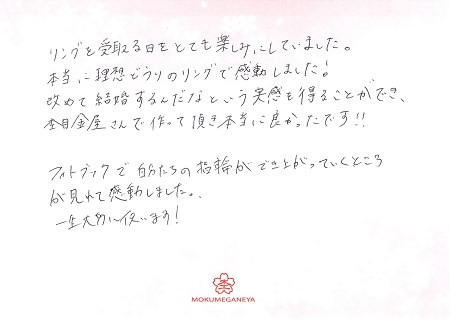 リングを受取る日をとても楽しみにしていました。
本当に理想どうりのリングで感動しました!
改めて結婚するんだなという実感を得ることができ、
杢目金屋さんで作って頂き本当に良かったです!!
フォトブックで自分たちの指輪ができ上がっていくところ
が見れて感動しました。
一生大切に使います!
MOKUMEGANEYA